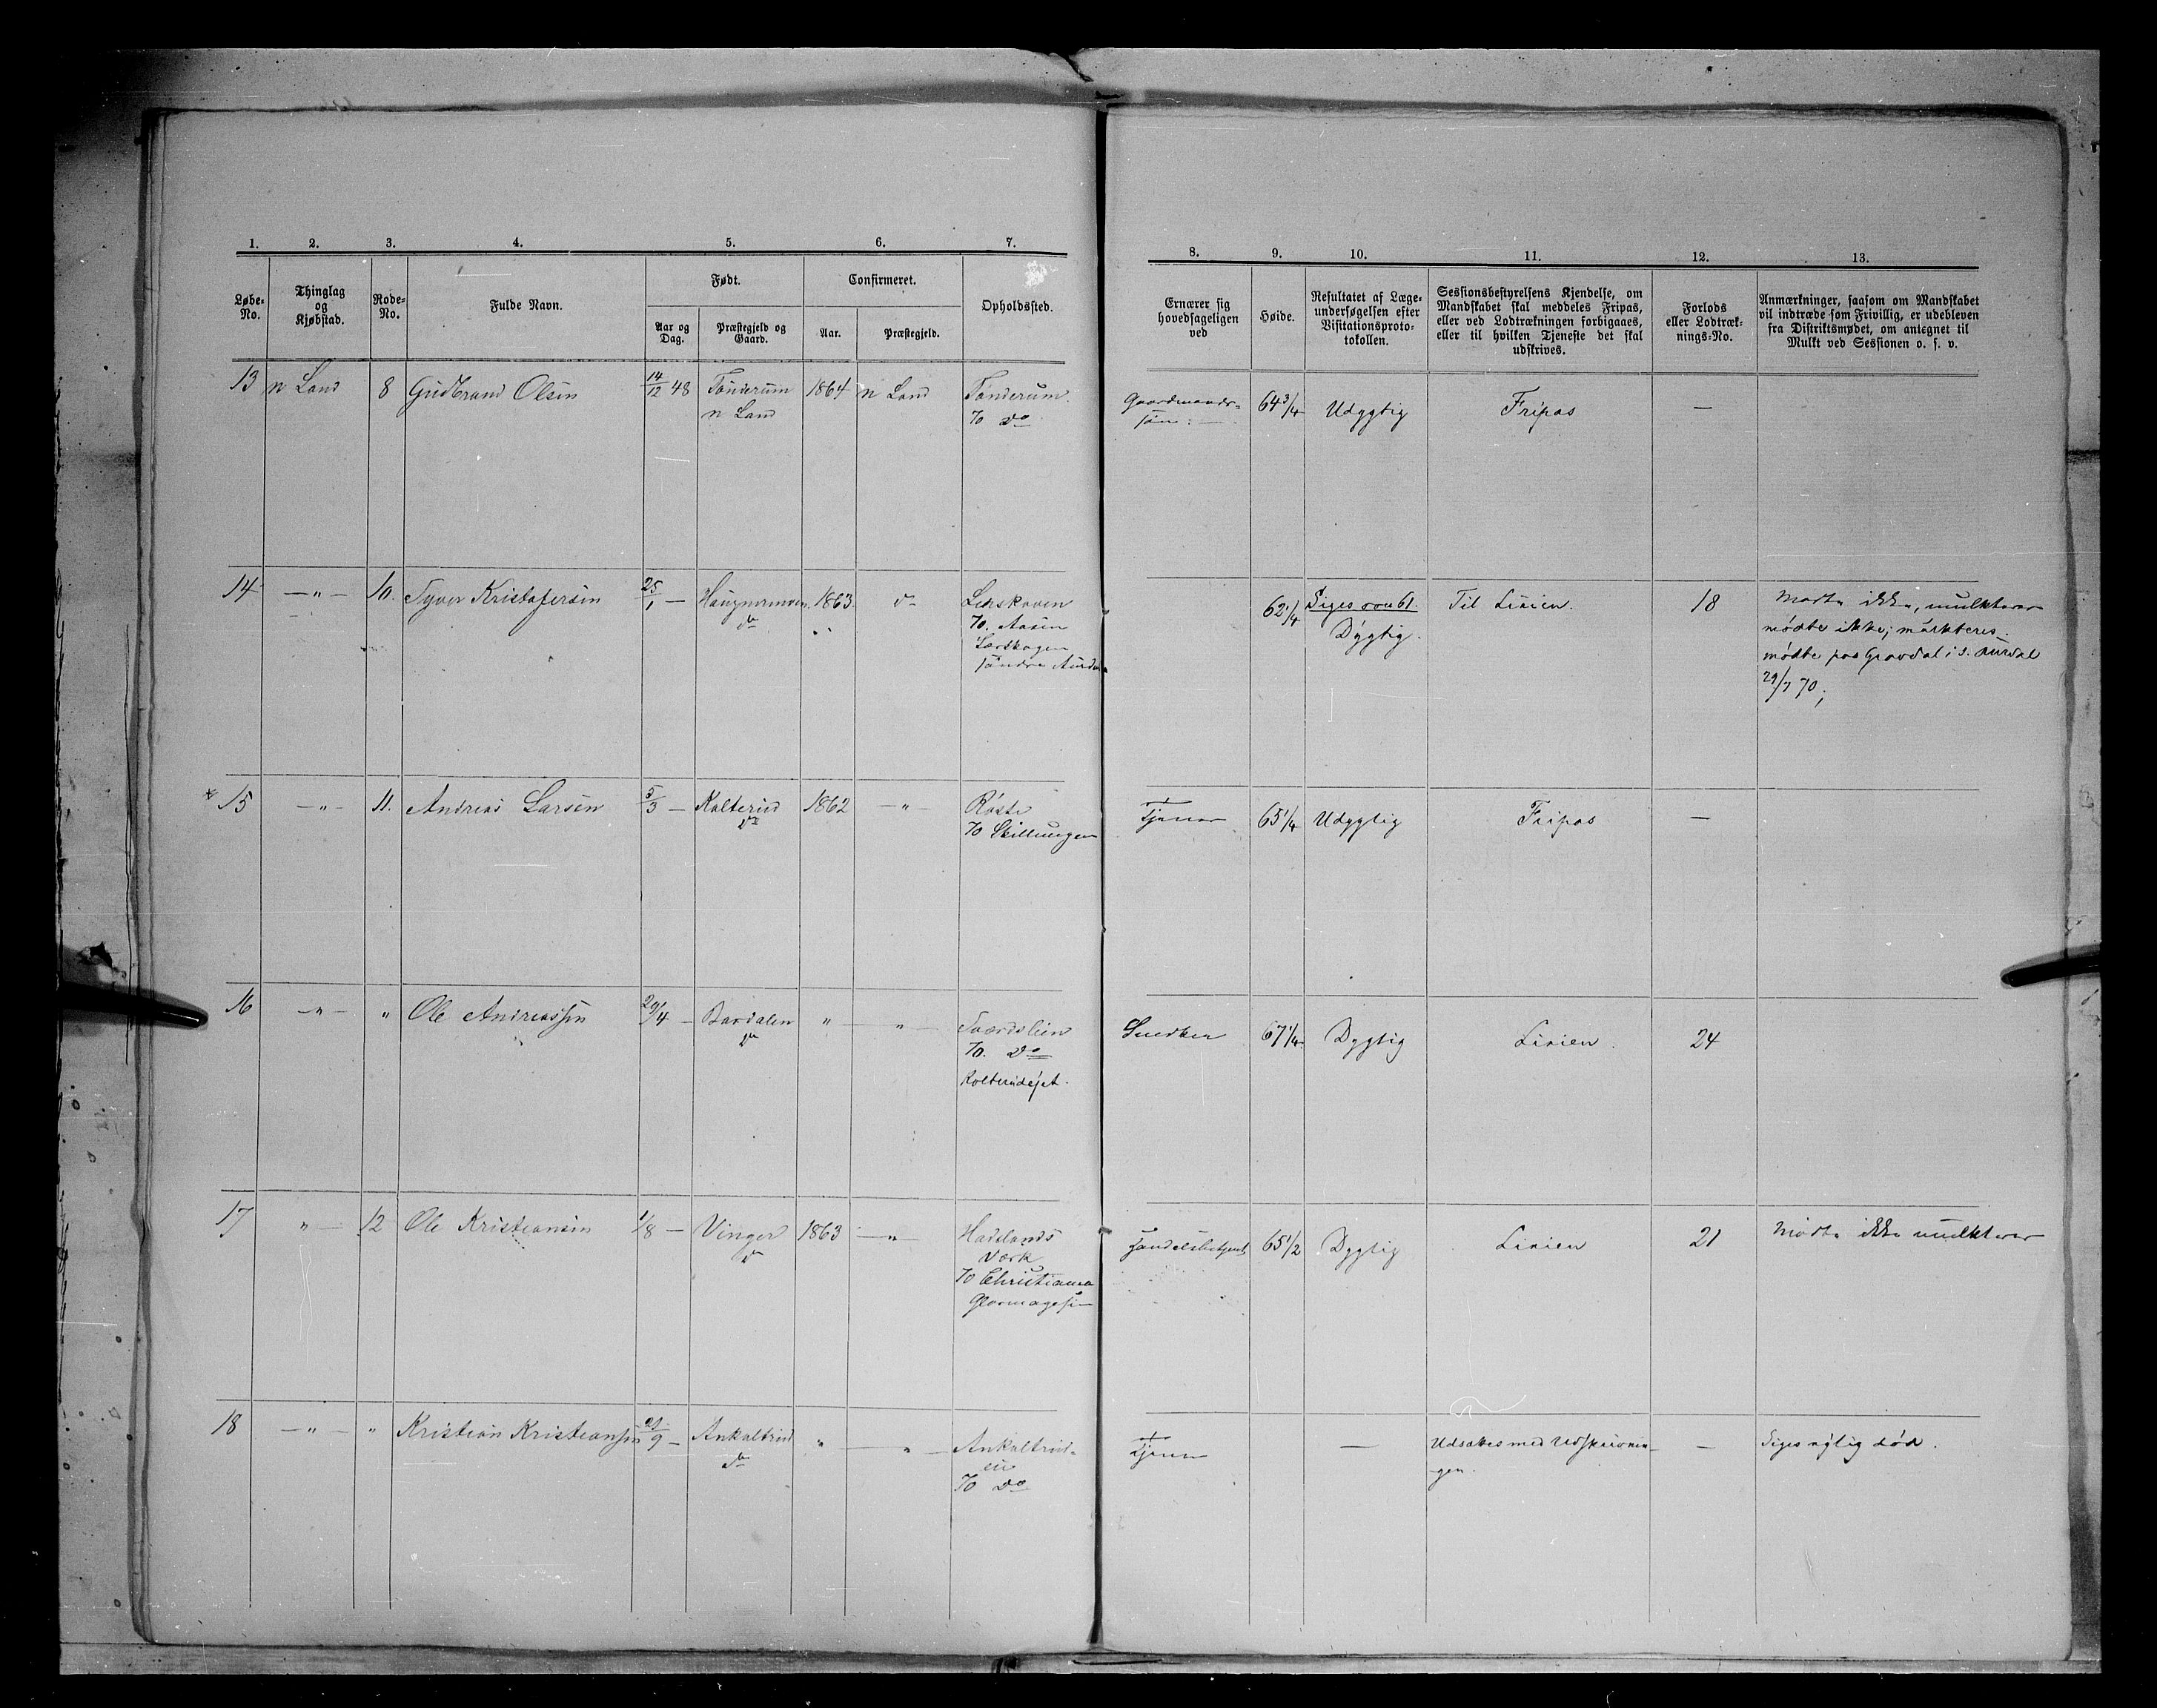 1. 2. 3. 4. 5. 6. 7.
8. 9. 10. 11. 12. 13.
Løbe-No.
Thinglag og Kjøbstad.
Rode-No.
Fulde Navn.
Født.
Aar og Dag.
Præstegjeld og Gaard.
Confirmeret.
Aar.
Præstegjeld.
Opholdssted.
Ernærer sig hovedsageligen ved
Høide.
Resultatet af Læge-undersøgelsen efter Visitationsproto-tokollen.
Sessionsbestyrelsens Kjendelse, om Mandskabet skal meddeles Fripas, eller ved Lodtrækningen forbigaaes, eller til hvilken Tjeneste det skal udskrives.
Forlods eller Lodtræk-nings-No.
Anmærkninger, saasom om Mandskabet vil indtræde som Frivillig, er udebleven fra Distriktsmødet, om antegnet til Mulkt ved Sessionen o. s. v.
13 n Land 8 Gudbrand Olsen 14/12 48 Tønderum 1864 n Land Tonderum
n Land
70 do
Gaardmands-
søn
64 3/4 Udygtig Fripas —
14 — " — 10. Syver Kristofersen 25/1 — 1863. do
do
70. Aasen
søndre Aurdal
62 1/4 Siges 61. Til Linien. 18 Mødte ikke, mulkteres
Dygtig. mødte ikke; mulkteres.
mødte paa Gravdal i S. Aurdal
29/7 70;
15 — " — 11. Andreas Larsen 5/3 — Kolterud 1862 — " — Røste
do
70 Skillungen
Tjener 65 1/4 Udygtig Fripas —
16 — " — " Ole Andreassen 29/4 — Bardalen " — " —
do
70. do
Kolterudejet.
Snedker 67 1/4 Dygtig Linien. 24
17 " — 12 Ole Kristiansen 1/8 — Vinger 1863 — " — Hadelands
do Værk
70 Christiania
Glasmagasin
Handelsbetjent 65 1/2 Dygtig Linien 21 Mødte ikke mulkteres
18 — " — " Kristian Kristiansen 21/9 — Ankaltrud " " — Ankaltrud-
do eie
70 do
Tjener — Udsættes med Udskrivnin- — Siges nylig død.
-gen.